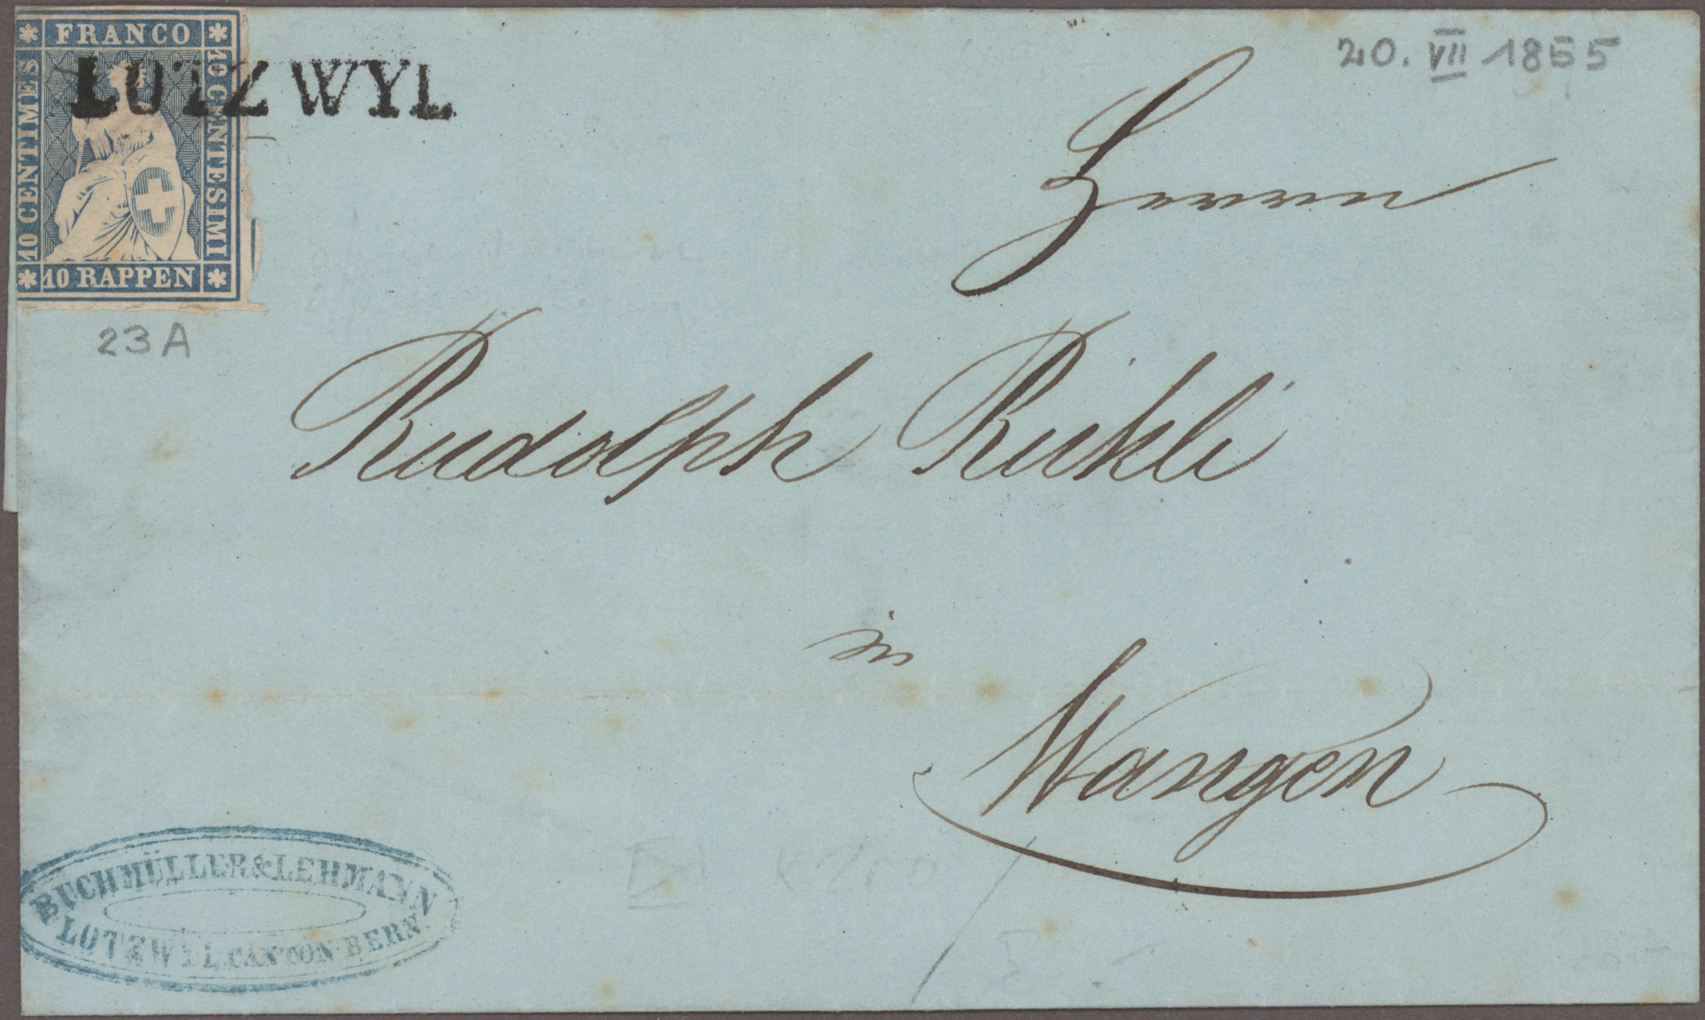 FRANCO
10 CENTIMES
10 CENTESIMI
10 RAPPEN
LOTZWYL
20. VII 1855
23A
Herrn
Rudolph Rikli
in
Wangen
BUCHMÜLLER & LEHMANN
LOTZWYL CANTON BERN